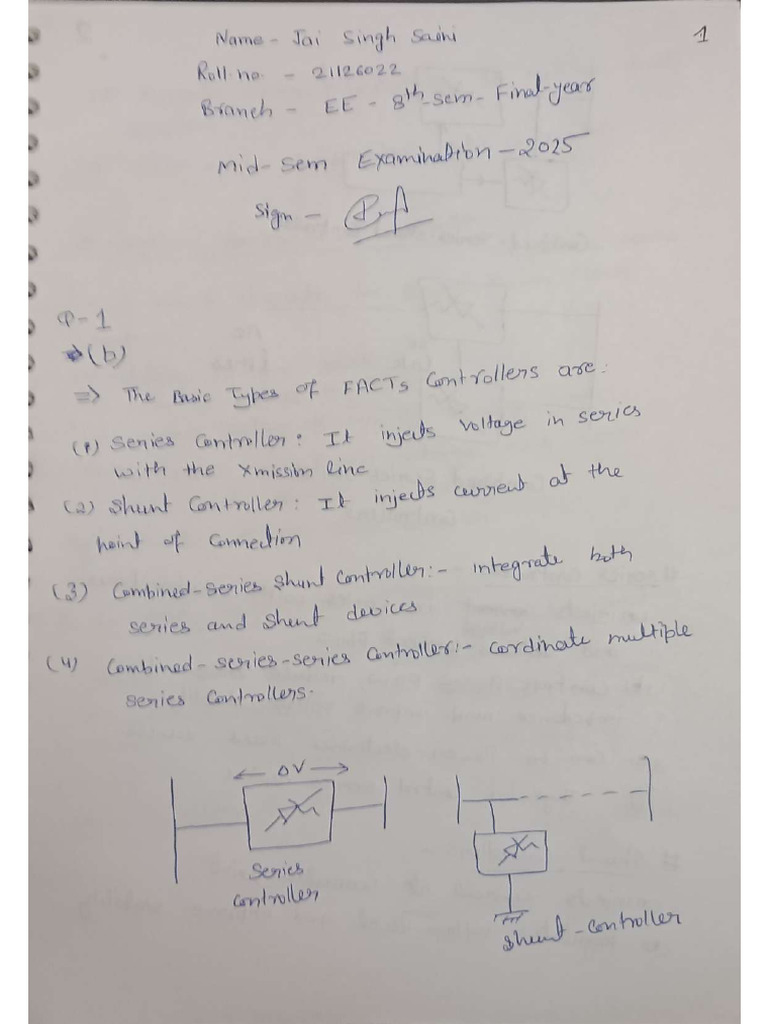 1
Name - Jai Singh Saini
Roll no. - 21126022
Branch - EE - 8th-sem - Final-year
Mid-Sem Examination - 2025
Sign -
Q-1
(b)
=> The Basic Types of FACTs Controllers are:
(1) Series Controller: It injects voltage in series
with the Xmission line
(2) Shunt Controller: It injects current at the
point of connection
(3) Combined-series shunt controller:- integrate both
series and shunt devices
(4) Combined-series-series controller:- cordinate multiple
series controllers.
← ΔV →
Series
controller
Shunt-controller